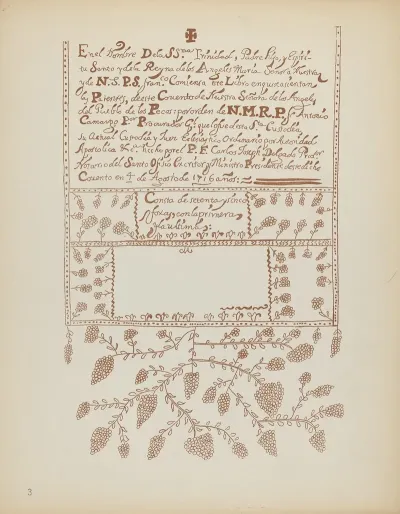 En el Nombre De la SS.ma Trinidad, Padre Hijo, y Espiri-
tu Santo y de la Reyna de los Angeles Maria Señora Nuestra,
y de N. S. P. S. Fran.co Comiensa este Libro en que se asientan
los Prientes, de este Conuento de Nuestra Señora de los Angeles
del Pueblo de los Pecos por orden de N. M. R. P. Fr. Antonio
Camargo Ex Procurador G.l que fue de esta S.ta Custodia
su actual Custodio y Juez Ecleciastico Ordinario por Autoridad
Apostolica &.a hecho por el P. F. Carlos Joseph Delgado Pred.or
Notario del Santo Oficio Escritor y Ministro Presidente de este dho
Conuento en 4 de Agosto de 1716 años
Consta de setenta y sinco
fojas, con la primera,
y la ultima;
3